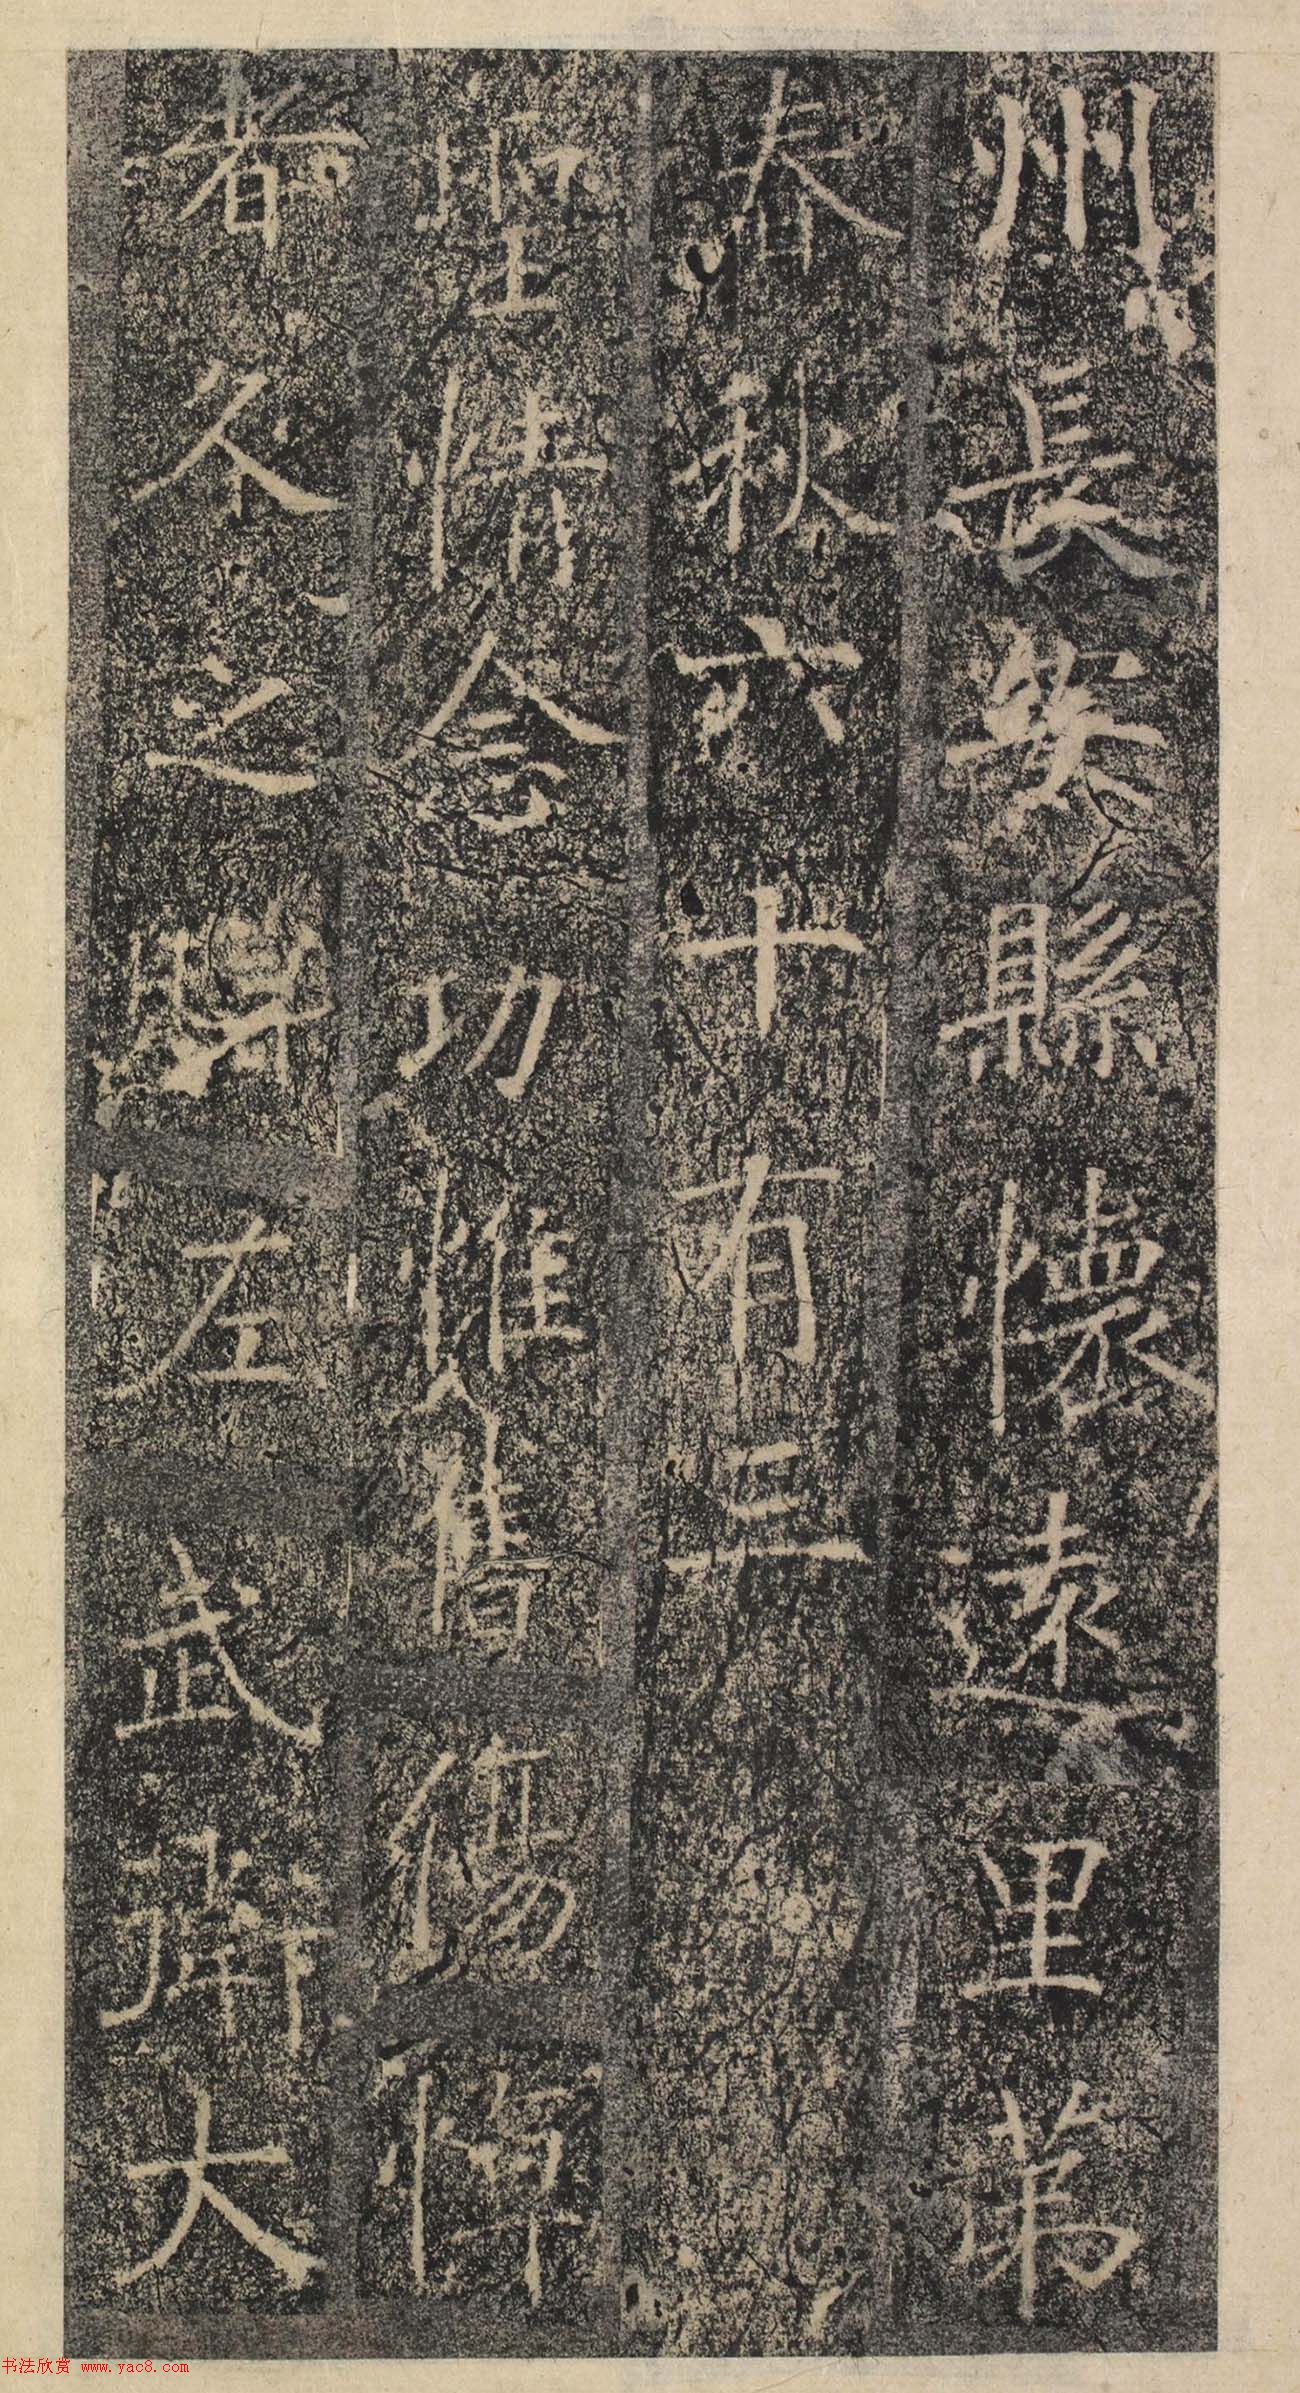 州長安縣懷遠里第
春秋六十有三
聖情念功惟舊傷悼
者久之贈左武衛大
书法欣赏 www.yac8.com